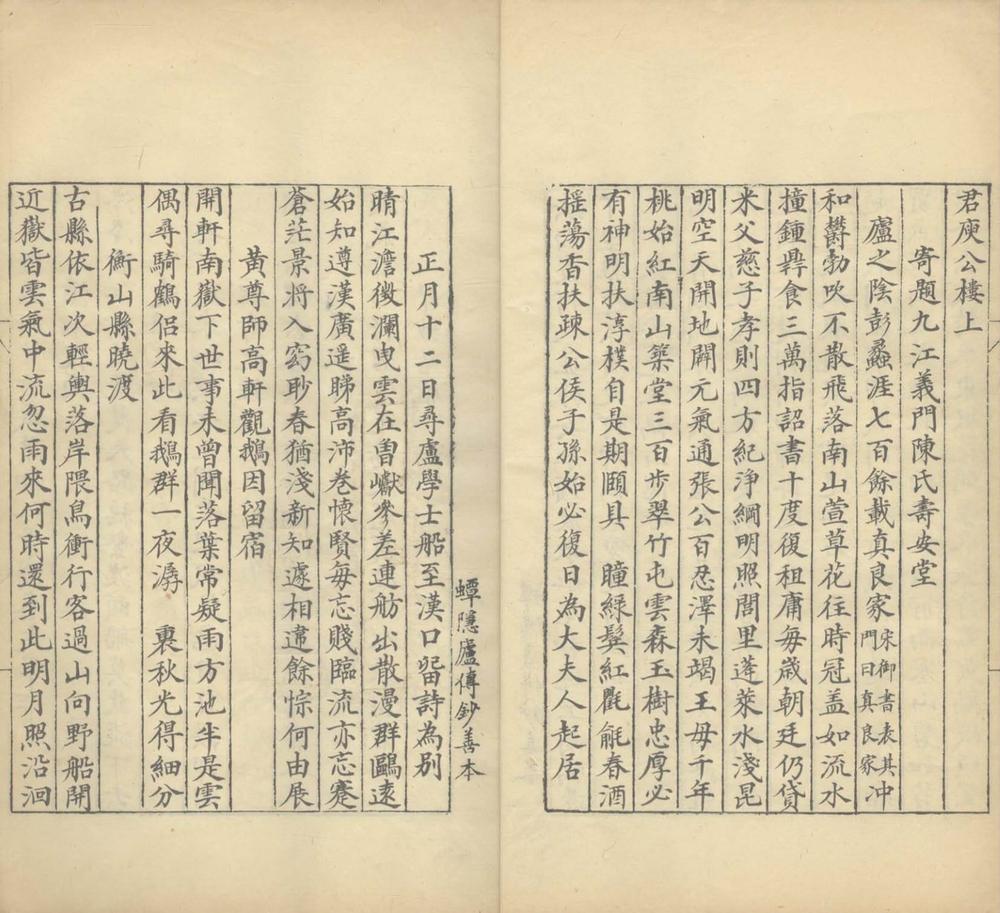 君庾公樓上
寄題九江義門陳氏壽安堂
廬之陰彭蠡涯七百餘載真良家宋御書表其門曰真良家冲
和欝勃吹不散飛落南山萱草花往時冠盖如流水
撞鍾鼎食三萬指詔書十度復租庸每歲朝廷仍貸
米父慈子孝則四方紀浄綱明照閭里蓬萊水淺昆
明空天開地闢元氣通張公百忍澤未竭王母千年
桃始紅南山築堂三百步翠竹屯雲森玉樹忠厚必
有神明扶淳樸自是期頤具瞳綠鬓紅氍毹春酒
摇蕩香扶疎公侯子孫始必復日為大夫人起居
蟫隱廬傳鈔善本
正月十二日尋盧學士船至漢口留詩為别
晴江澹微瀾曳雲在曾巘參差連舫出散漫群鷗遠
始知遵漢廣遥睇高沛巻懷賢每忘賤臨流亦忘蹇
蒼茫景将入窈眇春猶淺新知遽相違餘悰何由展
黄尊師高軒觀鵝因留宿
開軒南嶽下世事未曾聞落葉常疑雨方池半是雲
偶尋騎鶴侣來此看鵝群一夜潺 裏秋光得細分
衡山縣曉渡
古縣依江次輕輿落岸隈鳥衝行客過山向野船開
近嶽皆雲氣中流忽雨來何時還到此明月照沿洄